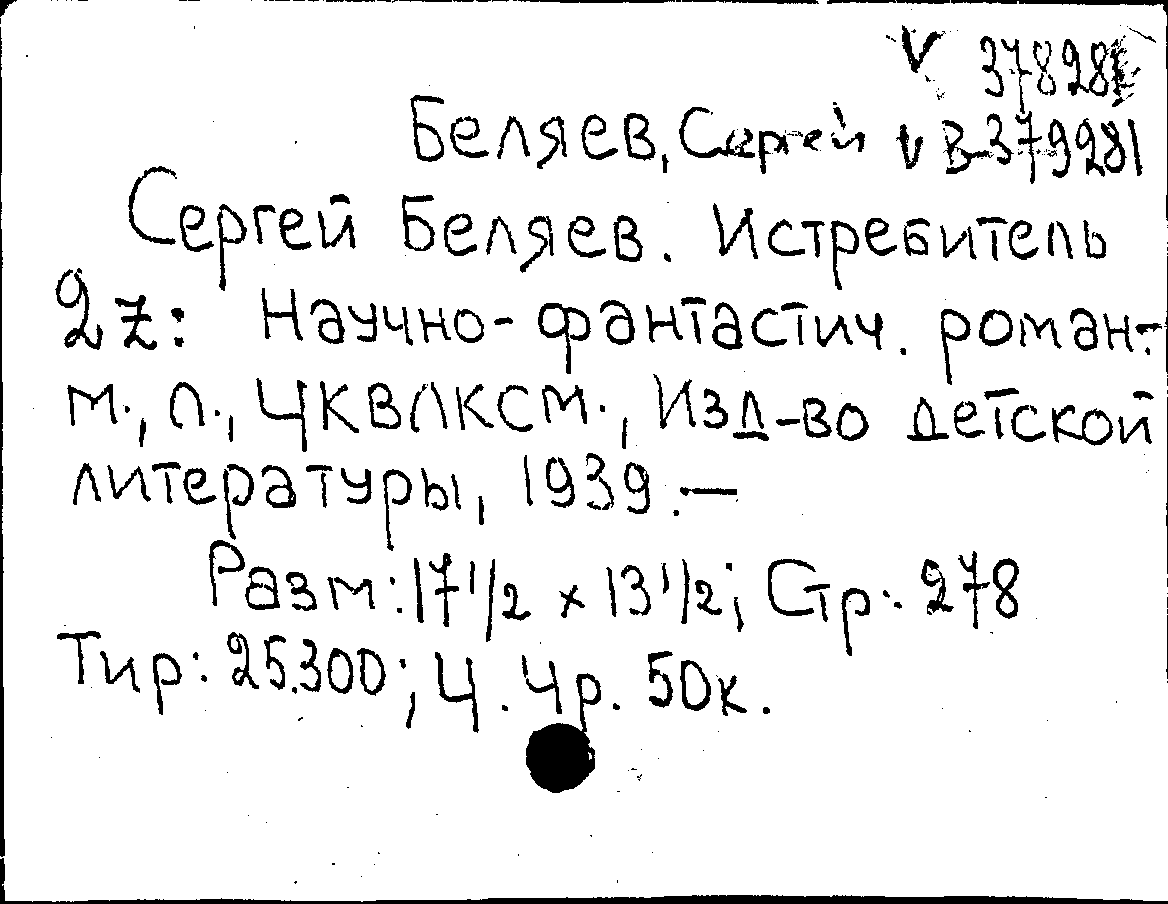 V 37828
Беляев, Сергей V В-379281
Сергей Беляев. Истребитель
2Z: Научно-фантастич. роман.-
М., Л., ЦКВЛКСМ., Изд-во детской
литературы, 1939.—
Разм: 17 1/2 x 13 1/2; Стр.: 278
Тир: 25.300; Ц. 4р. 50к.